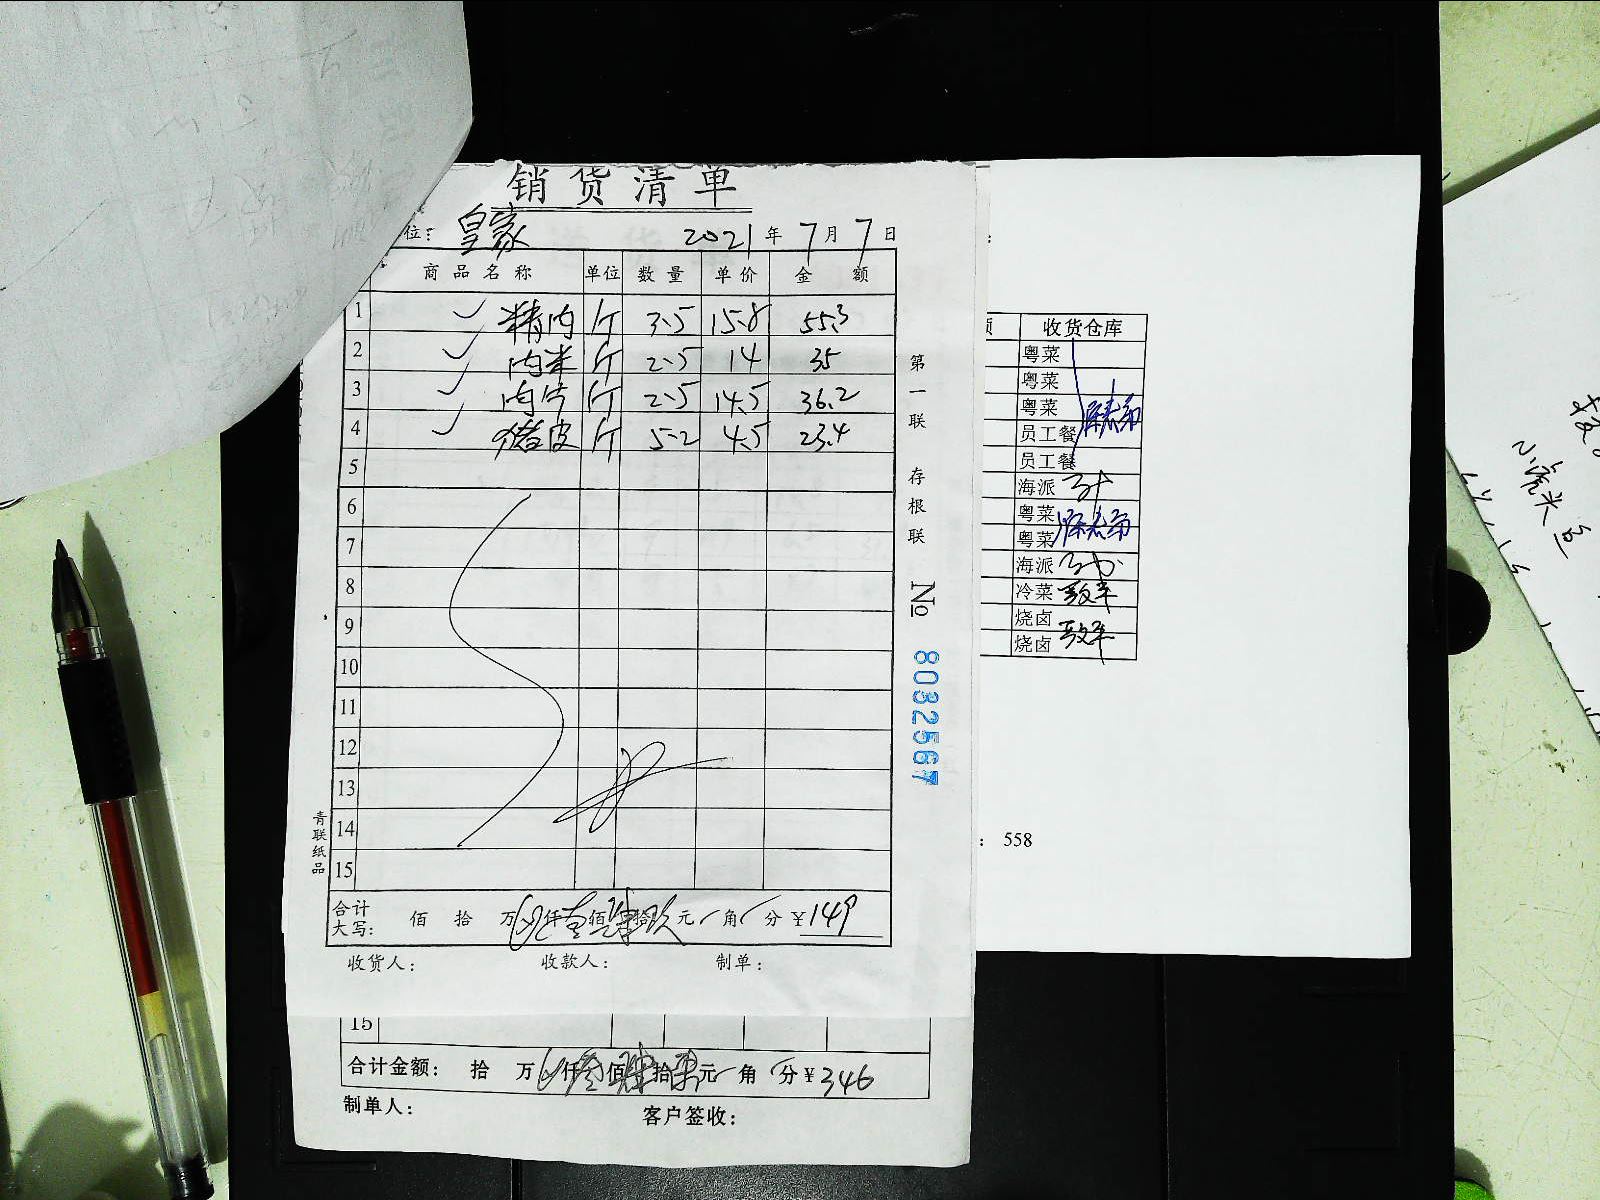 销货清单
位: 皇家 2021年7月7日
商品名称 单位 数量 单价 金额
1 精肉 斤 3.5 15.8 55.3
2 肉米 斤 2.5 14 35
3 肉片 斤 2.5 14.5 36.2
4 猪皮 斤 5.2 4.5 23.4
5
6
7
8
9
10
11
12
13
14
15
合计大写: 佰 拾 万 仟壹佰肆拾玖元 角 分 ¥149
收货人: 收款人: 制单:
第一联 存根联
№ 8032567
青联纸品
15
合计金额: 拾 万 仟叁佰肆拾 元 角 分 ¥346
制单人: 客户签收:
:
额 收货仓库
粤菜
粤菜
粤菜
员工餐
员工餐
海派
粤菜
粤菜
海派
冷菜
烧卤
烧卤
: 558